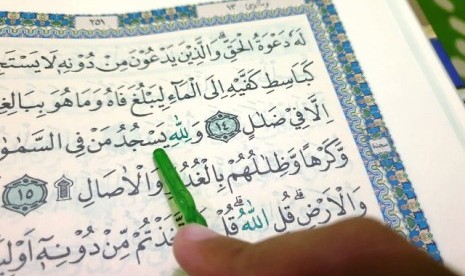 ٢٥١ ١٣
لَهٗ دَعْوَةُ الْحَقِّ ۗ وَالَّذِيْنَ يَدْعُوْنَ مِنْ دُوْنِهٖ لَا يَسْتَ
كَبَاسِطِ كَفَّيْهِ اِلَى الْمَاۤءِ لِيَبْلُغَ فَاهُ وَمَا هُوَ بِبَالِغِ
اِلَّا فِيْ ضَلٰلٍ ١٤ وَلِلّٰهِ يَسْجُدُ مَنْ فِى السَّمٰوٰ
وَّكَرْهًا وَّظِلٰلُهُمْ بِالْغُدُوِّ وَالْاٰصَالِ ۩ ١٥
وَالْاَرْضِۗ قُلِ اللّٰهُ ۗ قُلْ تُمْ مِّنْ دُوْنِهٖٓ اَوْلِيَ